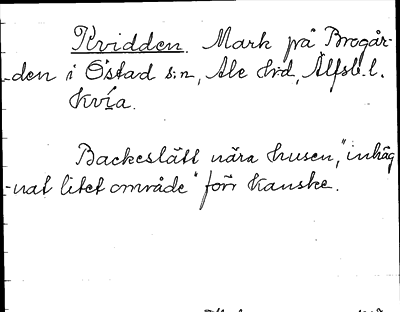 Kvidden. Mark på Brogår-
den i Östad s:n, Ale h:d, Älfsb. l.
Kvía.
Backeslätt nära husen, "inhäg
-nat litet område" förr kanske.